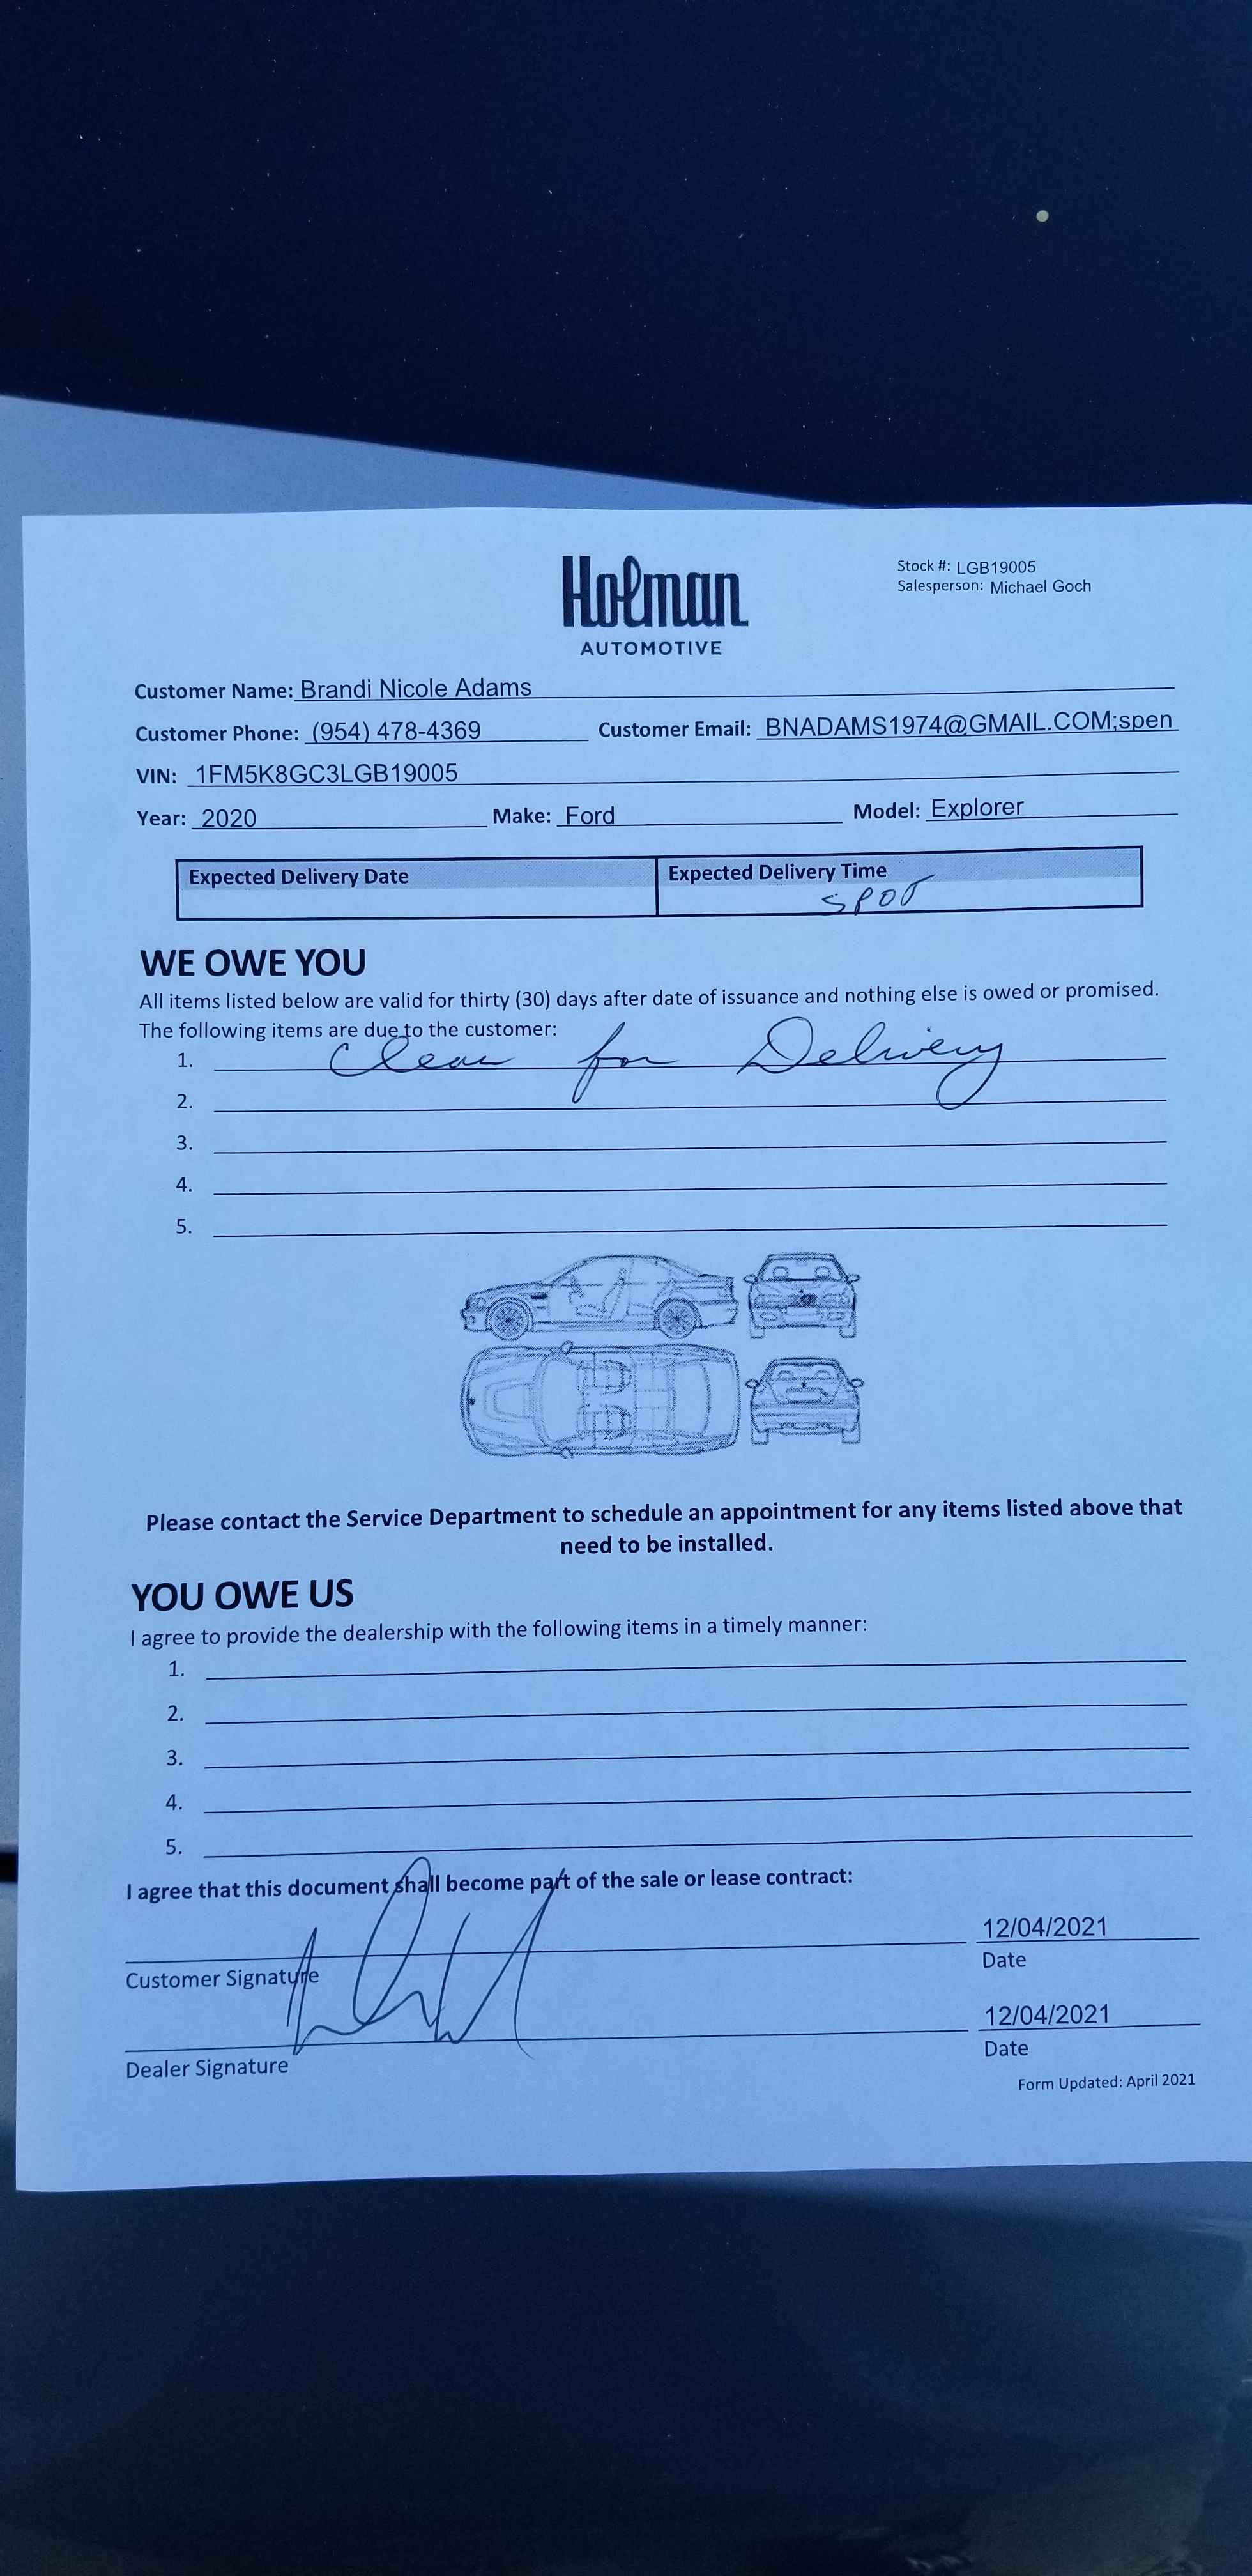 Holman
AUTOMOTIVE
Stock #: LGB19005
Salesperson: Michael Goch
Customer Name: Brandi Nicole Adams
Customer Phone: (954) 478-4369 Customer Email: BNADAMS1974@GMAIL.COM;spen
VIN: 1FM5K8GC3LGB19005
Year: 2020 Make: Ford Model: Explorer
Expected Delivery Date Expected Delivery Time
SPOT
WE OWE YOU
All items listed below are valid for thirty (30) days after date of issuance and nothing else is owed or promised.
The following items are due to the customer:
1. Clean for Delivery
2.
3.
4.
5.
Please contact the Service Department to schedule an appointment for any items listed above that
need to be installed.
YOU OWE US
I agree to provide the dealership with the following items in a timely manner:
1.
2.
3.
4.
5.
I agree that this document shall become part of the sale or lease contract:
12/04/2021
Customer Signature Date
12/04/2021
Dealer Signature Date
Form Updated: April 2021